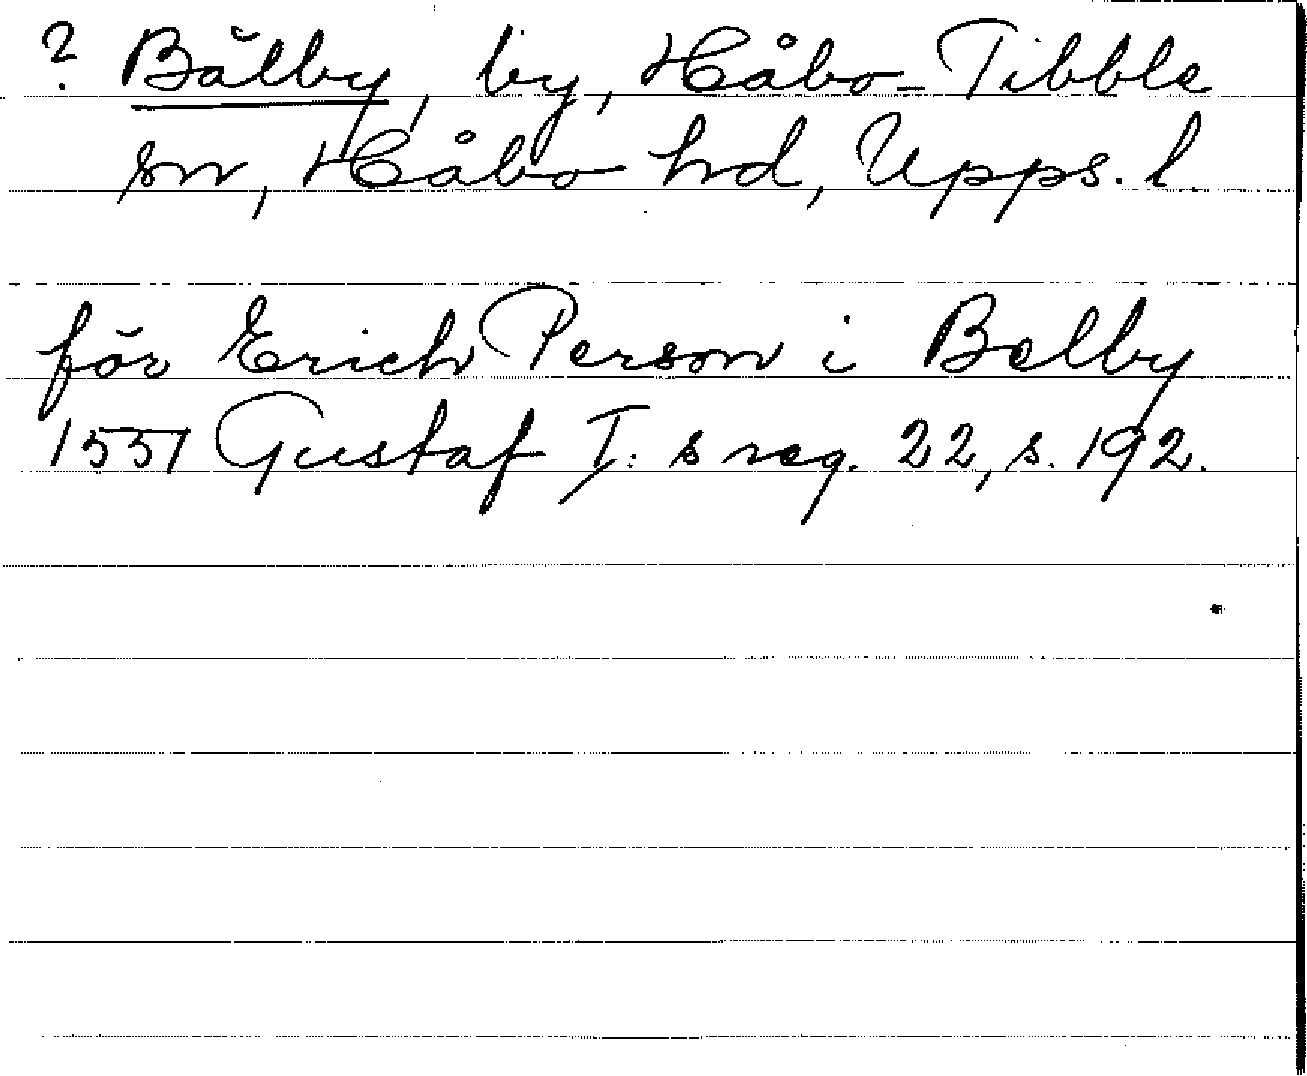 ? Bälby, by, Håbo-Tibble
sn, Håbo hd, Upps. l.
för Erich Person i Belby
1551 Gustaf I:s reg. 22, s. 192.